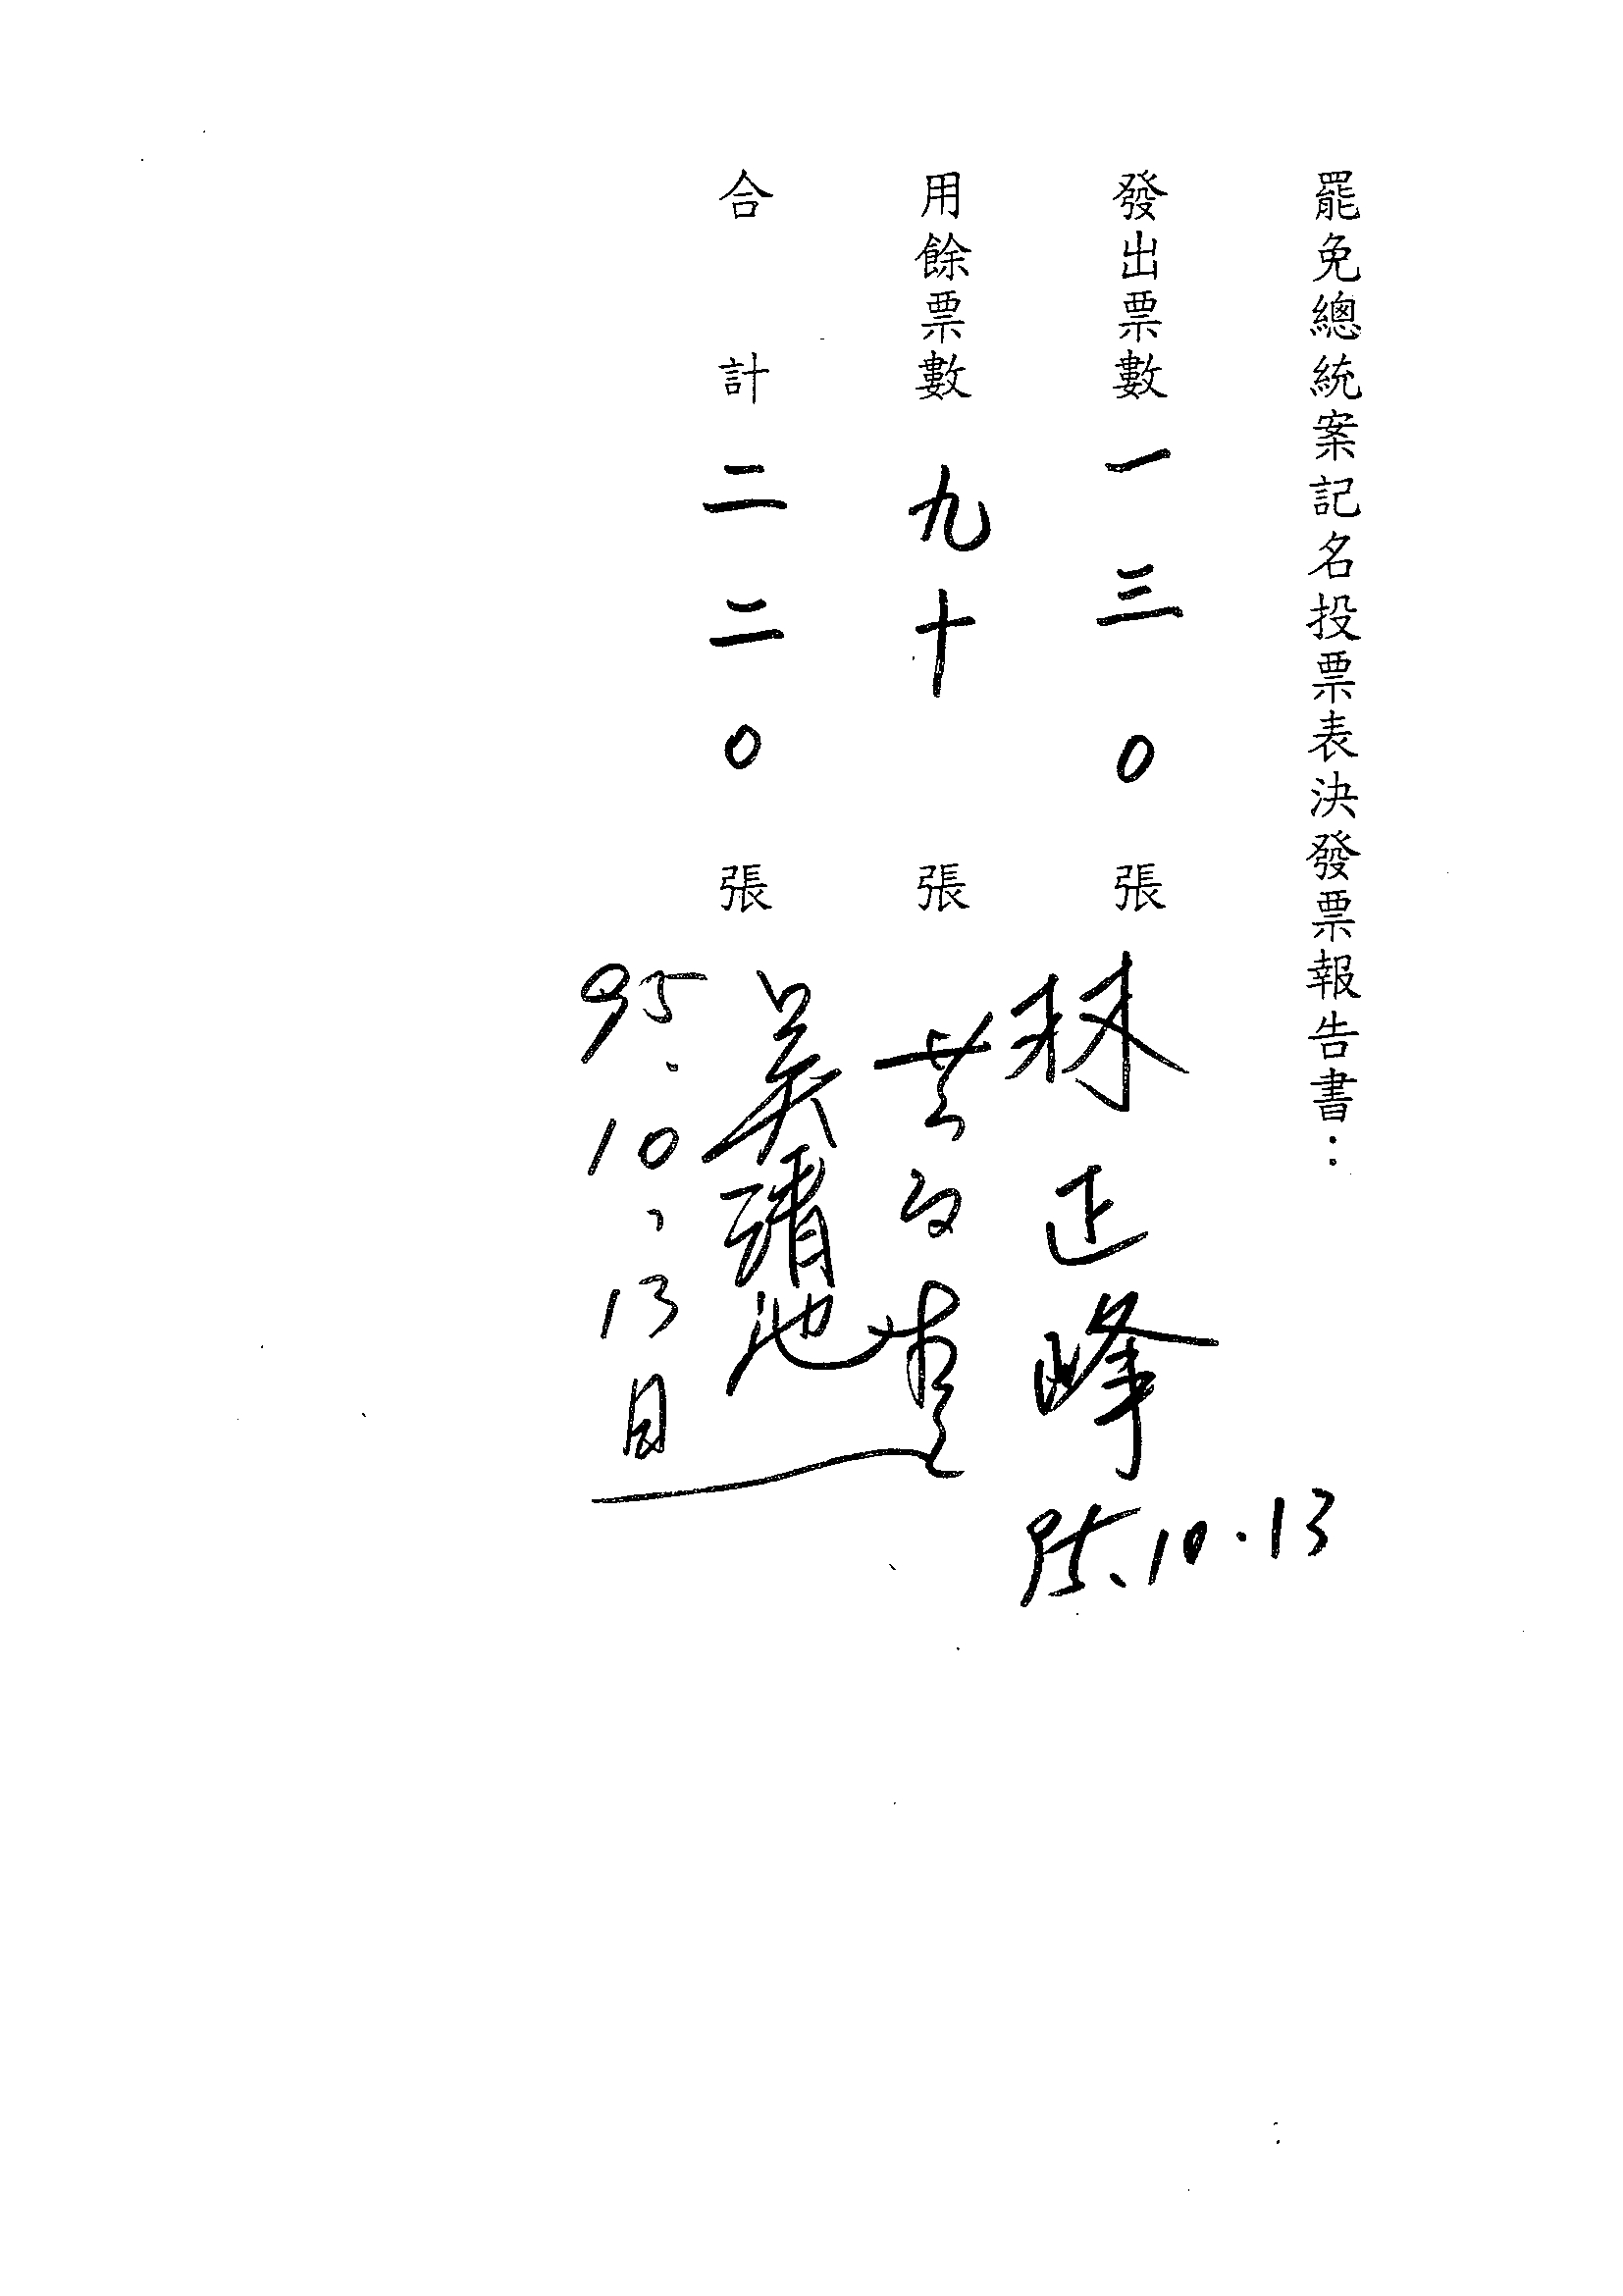 罷免總統案記名投票表決發票報告書：
發出票數一三0張
林正峰
95.10.13
用餘票數九十張
合計二二0張
吳清池
95.10.13日